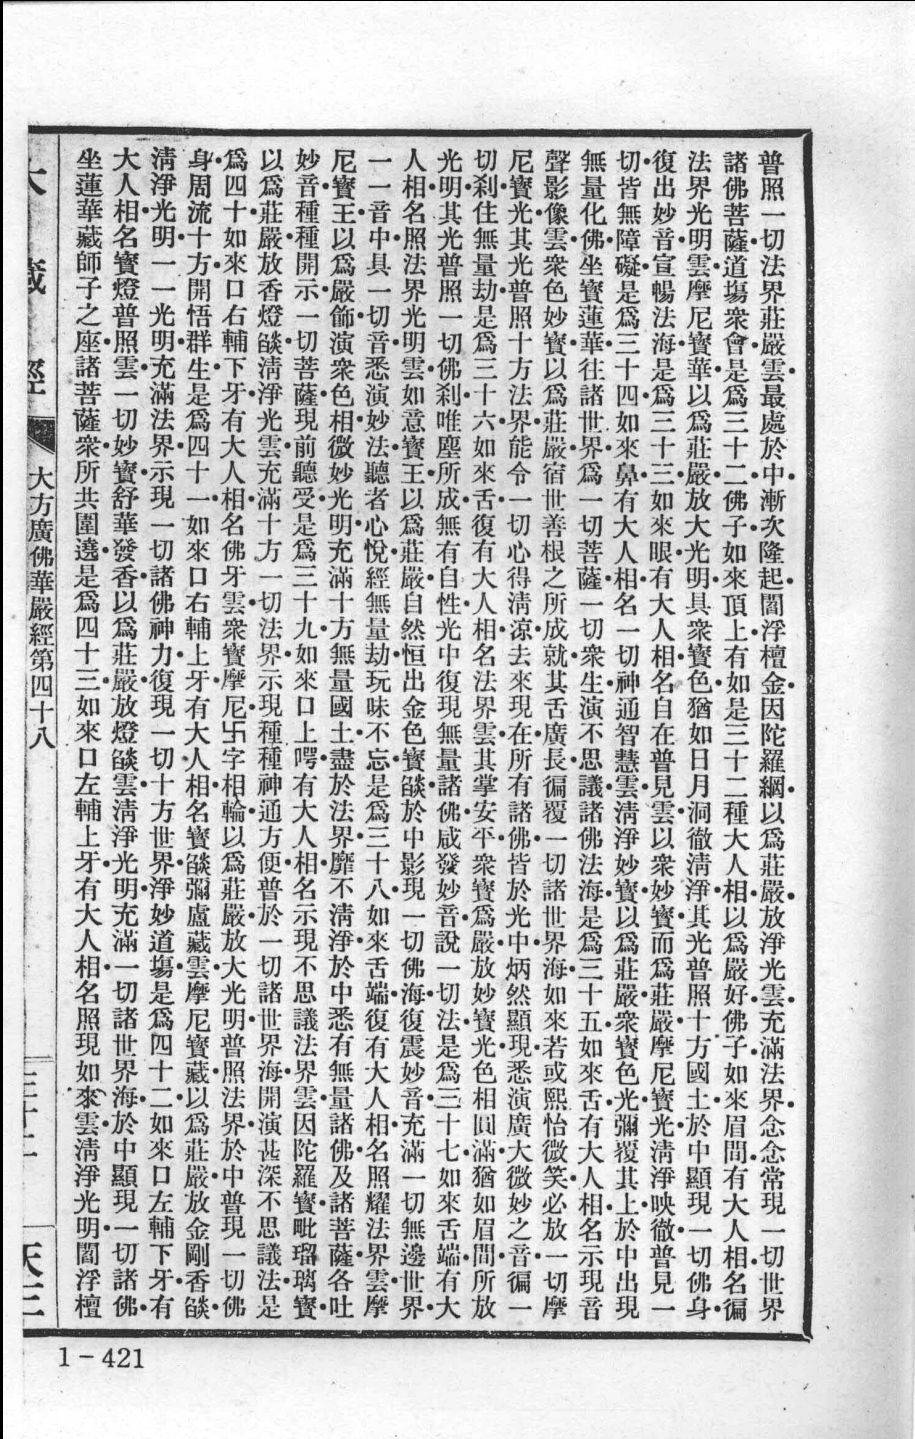 普照一切法界莊嚴雲最處於中漸次隆起閻浮檀金因陀羅網以爲莊嚴放淨光雲充滿法界念念常現一切世界
諸佛菩薩道場衆會是爲三十二佛子如來頂上有如是三十二種大人相以爲嚴好佛子如來眉間有大人相名徧
法界光明雲摩尼寶華以爲莊嚴放大光明具衆寶色猶如日月洞徹淸淨其光普照十方國土於中顯現一切佛身
復出妙音宣暢法海是爲三十三如來眼有大人相名自在普見雲以衆妙寶而爲莊嚴摩尼寶光淸淨映徹普見一
切皆無障礙是爲三十四如來鼻有大人相名一切神通智慧雲淸淨妙寶以爲莊嚴衆寶色光彌覆其上於中出現
無量化佛坐寶蓮華往諸世界爲一切菩薩一切衆生演不思議諸佛法海是爲三十五如來舌有大人相名示現音
聲影像雲衆色妙寶以爲莊嚴宿世善根之所成就其舌廣長徧覆一切諸世界海如來若或熙怡微笑必放一切摩
尼寶光其光普照十方法界能令一切心得淸涼去來現在所有諸佛皆於光中炳然顯現悉演廣大微妙之音徧一
切刹住無量劫是爲三十六如來舌復有大人相名法界雲其掌安平衆寶爲嚴放妙寶光色相圓滿猶如眉間所放
光明其光普照一切佛刹唯塵所成無有自性光中復現無量諸佛咸發妙音說一切法是爲三十七如來舌端有大
人相名照法界光明雲如意寶王以爲莊嚴自然恒出金色寶燄於中影現一切佛海復震妙音充滿一切無邊世界
一一音中具一切音悉演妙法聽者心悅經無量劫玩味不忘是爲三十八如來舌端復有大人相名照耀法界雲摩
尼寶王以爲嚴飾演衆色相微妙光明充滿十方無量國土盡於法界靡不淸淨於中悉有無量諸佛及諸菩薩各吐
妙音種種開示一切菩薩現前聽受是爲三十九如來口上齶有大人相名示現不思議法界雲因陀羅寶毗瑠璃寶
以爲莊嚴放香燈燄淸淨光雲充滿十方一切法界示現種種神通方便普於一切諸世界海開演甚深不思議法是
爲四十如來口右輔下牙有大人相名佛牙雲衆寶摩尼卐字相輪以爲莊嚴放大光明普照法界於中普現一切佛
身周流十方開悟群生是爲四十一如來口右輔上牙有大人相名寶燄彌盧藏雲摩尼寶藏以爲莊嚴放金剛香燄
淸淨光明一一光明充滿法界示現一切諸佛神力復現一切十方世界淨妙道場是爲四十二如來口左輔下牙有
大人相名寶燈普照雲一切妙寶舒華發香以爲莊嚴放燈燄雲淸淨光明充滿一切諸世界海於中顯現一切諸佛
坐蓮華藏師子之座諸菩薩衆所共圍遶是爲四十三如來口左輔上牙有大人相名照現如來雲淸淨光明閻浮檀
大藏經 大方廣佛華嚴經第四十八
1-421